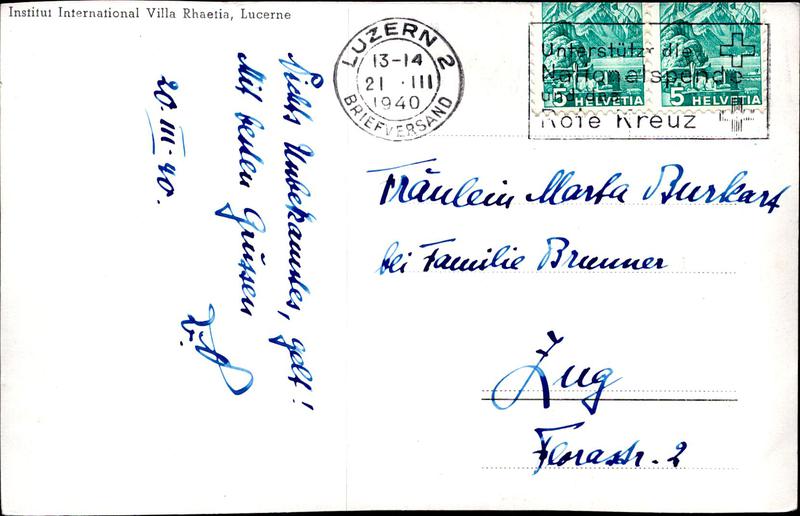 Institut International Villa Rhaetia, Lucerne
Nichts Unbekanntes, gelt!
Mit besten Grüssen
20. III. 40.
LUZERN 2
13-14
21 . III
1940
BRIEFVERSAND
Unterstützt die
Nationalspende
und das
Rote Kreuz
5 HELVETIA
5 HELVETIA
Fräulein Marta Burkart
bei Familie Brunner
Zug
Florastr. 2